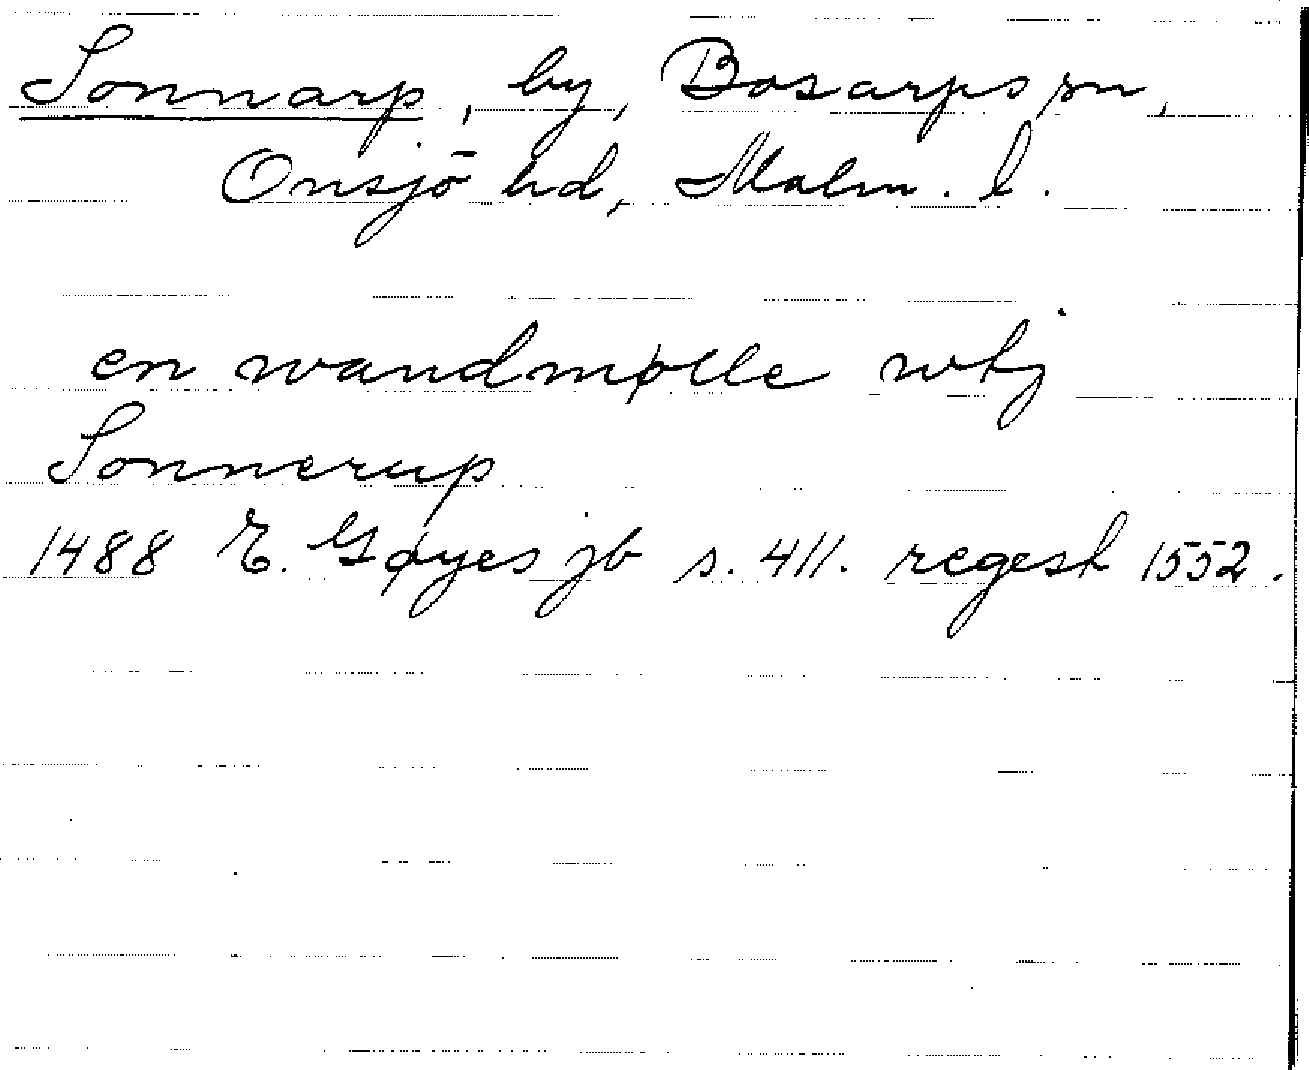 Sonnarp, by, Bosarps sn,
Onsjö hd, Malm. l.
en wandmølle wtj
Sonnerup
1488 E. Gøyes jb s. 411. regest 1552.